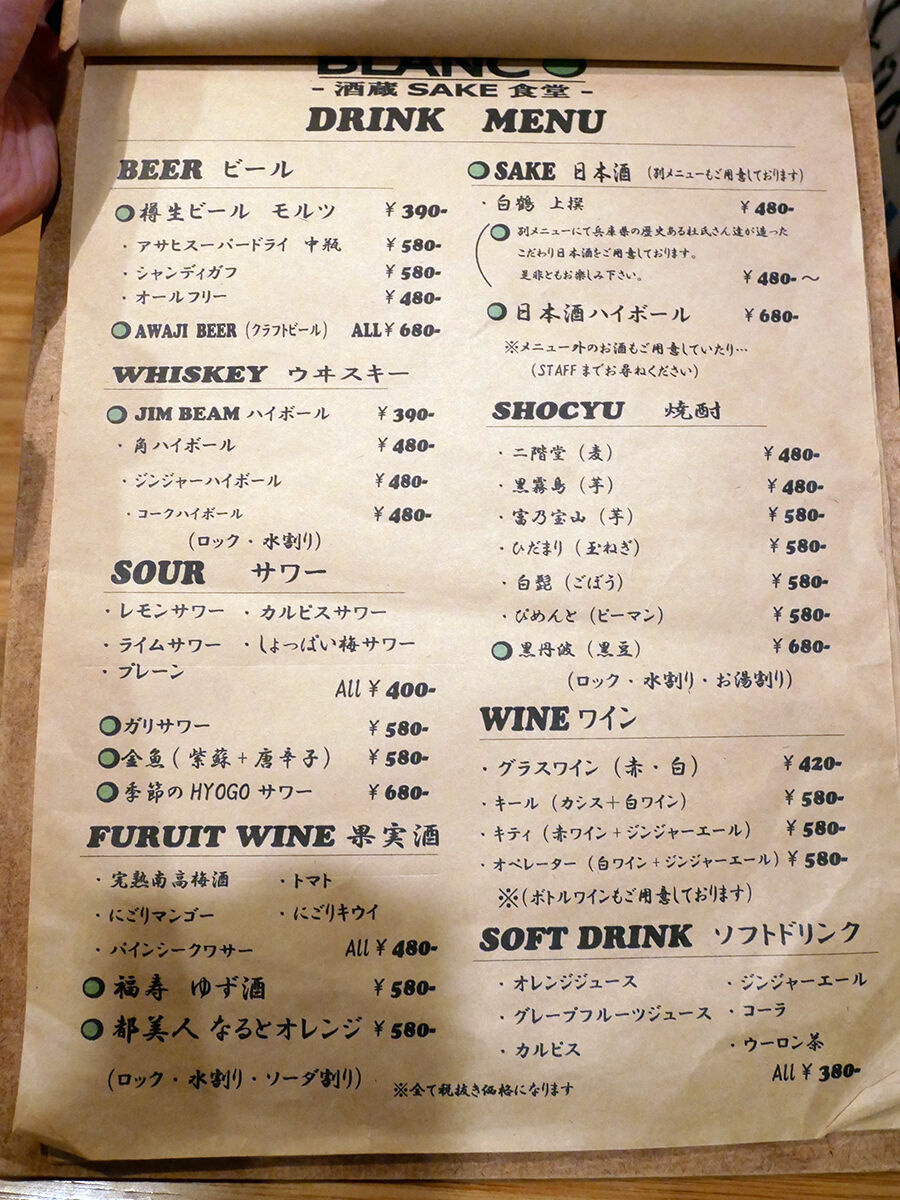 BLANCO
- 酒蔵 SAKE 食堂 -
DRINK MENU
BEER ビール
樽生ビール モルツ ¥390-
・アサヒスーパードライ 中瓶 ¥580-
・シャンディガフ ¥580-
・オールフリー ¥480-
AWAJI BEER (クラフトビール) ALL ¥680-
WHISKEY ウヰスキー
JIM BEAM ハイボール ¥390-
・角ハイボール ¥480-
・ジンジャーハイボール ¥480-
・コークハイボール ¥480-
(ロック・水割り)
SOUR サワー
・レモンサワー ・カルピスサワー
・ライムサワー ・しょっぱい梅サワー
・プレーン
All ¥400-
ガリサワー ¥580-
金魚(紫蘇+唐辛子) ¥580-
季節のHYOGOサワー ¥680-
FURUIT WINE 果実酒
・完熟南高梅酒 ・トマト
・にごりマンゴー ・にごりキウイ
・パインシークワサー All ¥480-
福寿 ゆず酒 ¥580-
都美人 なるとオレンジ ¥580-
(ロック・水割り・ソーダ割り)
SAKE 日本酒 (別メニューもご用意しております)
・白鶴 上撰 ¥480-
別メニューにて兵庫県の歴史ある杜氏さん達が造った
こだわり日本酒をご用意しております。
是非ともお楽しみ下さい。 ¥480-〜
日本酒ハイボール ¥680-
※メニュー外のお酒もご用意していたり…
(STAFFまでお尋ねください)
SHOCYU 焼酎
・二階堂(麦) ¥480-
・黒霧島(芋) ¥480-
・富乃宝山(芋) ¥580-
・ひだまり(玉ねぎ) ¥580-
・白髭(ごぼう) ¥580-
・ぴめんと(ピーマン) ¥580-
黒丹波(黒豆) ¥680-
(ロック・水割り・お湯割り)
WINE ワイン
・グラスワイン(赤・白) ¥420-
・キール(カシス+白ワイン) ¥580-
・キティ(赤ワイン+ジンジャーエール) ¥580-
・オペレーター(白ワイン+ジンジャーエール) ¥580-
※(ボトルワインもご用意しております)
SOFT DRINK ソフトドリンク
・オレンジジュース ・ジンジャーエール
・グレープフルーツジュース ・コーラ
・カルピス ・ウーロン茶
All ¥380-
※全て税抜き価格になります